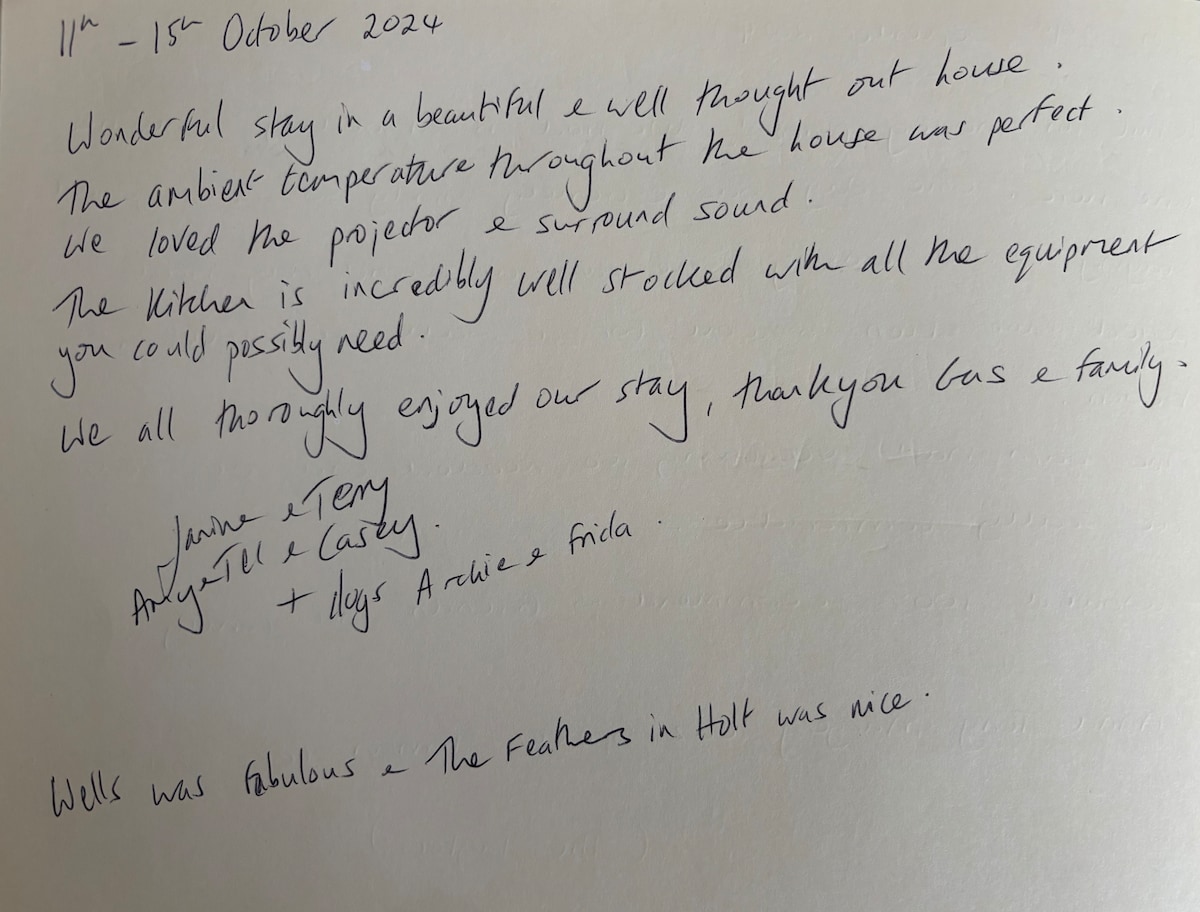 11th - 15th October 2024
Wonderful stay in a beautiful & well thought out house.
The ambient temperature throughout the house was perfect.
We loved the projector & surround sound.
The Kitchen is incredibly well stocked with all the equipment
you could possibly need.
We all thoroughly enjoyed our stay, thankyou Gus & family.
Janine & Terry
& & Casey.
+ dogs Archie & Frida.
Wells was fabulous & The Feathers in Holt was nice.